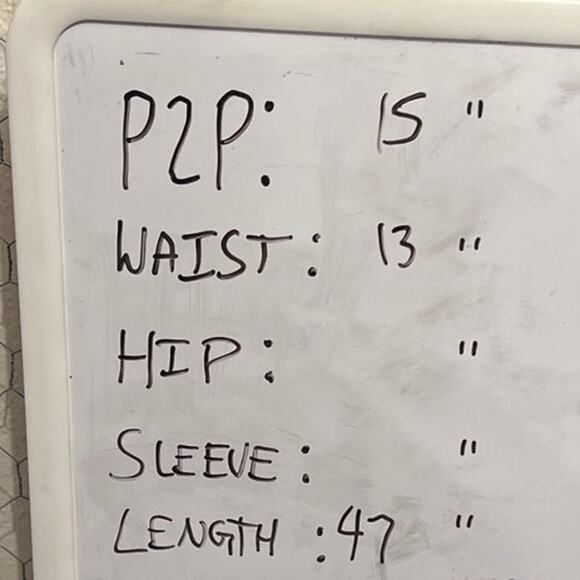 P2P: 15 "
WAIST: 13 "
HIP: "
SLEEVE: "
LENGTH: 47 "